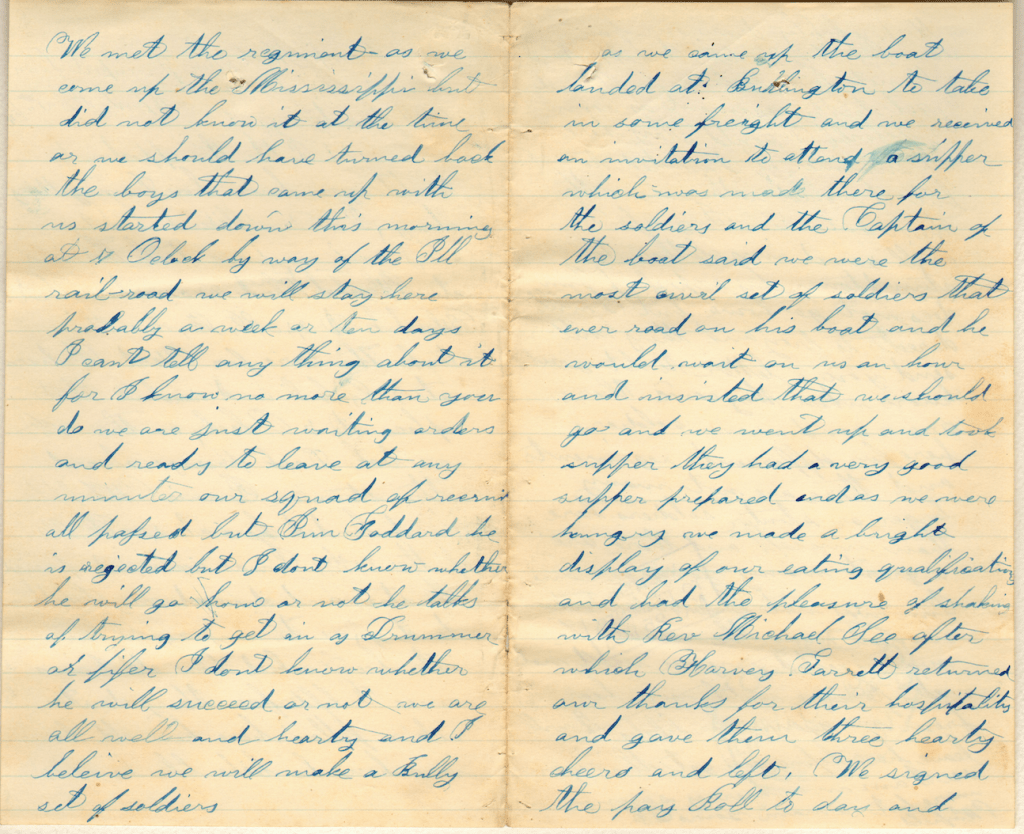 We met the regiment as we
come up the Mississippi but
did not know it at the time
or we should have turned back
the boys that came up with
us started down this morning
at 8 Oclock by way of the Ill
rail-road we will stay here
probably a week or ten days
I cant tell any thing about it
for I know no more than you
do we are just waiting orders
and ready to leave at any
minute our squad of
all passed but Jim Goddard he
is regected but I dont know whether
he will go home or not he talks
of trying to get in as Drummer
or fifer I dont know whether
he will succeed or not we are
all well and hearty and I
beleive we will make a Bully
set of soldiers
as we came up the boat
landed at Burlington to take
in some freight and we received
an invitation to attend a supper
which was made there for
the soldiers and the Captain of
the boat said we were the
most civil set of soldiers that
ever road on his boat and he
would wait on us an hour
and insisted that we should
go and we went up and took
supper they had a very good
supper prepared and as we were
hungry we made a bright
display of our eating qualifications
and had the pleasure of shaking
with Rev Michael See after
which Harvey Jarrett returned
our thanks for their hospitality
and gave them three hearty
cheers and left. We signed
the pay Roll to day and